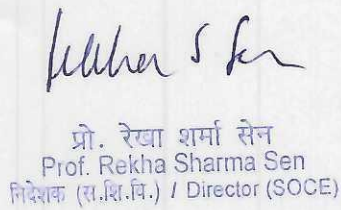 Rekha S Sen
प्रो. रेखा शर्मा सेन
Prof. Rekha Sharma Sen
निदेशक (स.शि.वि.) / Director (SOCE)